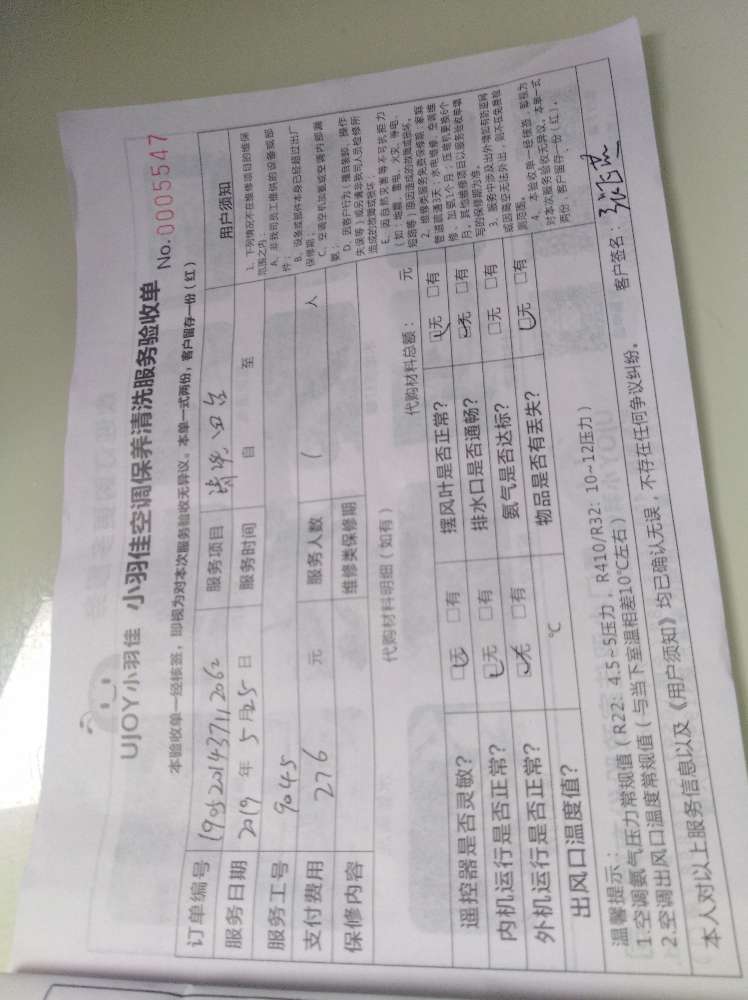 UJOY小羽佳 小羽佳空调保养清洗服务验收单
本验收单一经核签，即视为对本次服务验收无异议。本单一式两份，客户留存一份（红）
No.0005547
订单编号 服务项目
服务日期 2019 年 5 月 25 日 服务时间 自 至
服务工号 9045
支付费用 276 元 服务人数 人
保修内容 维修类保修期
用户须知
1、下列情况不在维修项目的维保
范围之内：
A、非我司员工提供的设备或部
件；
B、设备或部件本身已经超过出厂
保修期；
C、空调空机加氨或空调内部漏
氨；
D、因客户行为（擅自装卸、操作
失误等）或另请非我司人员检修所
造成的故障或损坏；
E、因自然灾害等不可抗拒力
（如：地震、雷电、火灾、停电、
短路等）原因造成的故障或损坏。
2、维修类服务免费保修期：家庭
管道疏通3天；水电维修、空调维
修、加氨1个月；压缩机更换6个
月，其他维修项目以服务验收单填
写的保修期为准。
3、服务中涉及出外墙如有防盗网
或因高空无法外出，则不在免费检
测范畴。
4、本验收单一经核签，即视为
对本次服务验收无异议。本单一式
两份，客户留存一份（红）。
代购材料明细（如有） 代购材料总额： 元
遥控器是否灵敏？ □无 □有 摆风叶是否正常？ □无 □有
内机运行是否正常？ □无 □有 排水口是否通畅？ □无 □有
外机运行是否正常？ □无 □有 氨气是否达标？ □无 □有
出风口温度值？ ℃ 物品是否有丢失？ □无 □有
温馨提示：
1.空调氨气压力常规值（R22：4.5~5压力，R410/R32：10~12压力）
2.空调出风口温度常规值（与当下室温相差10℃左右）
本人对以上服务信息以及《用户须知》均已确认无误，不存在任何争议纠纷。 客户签名：